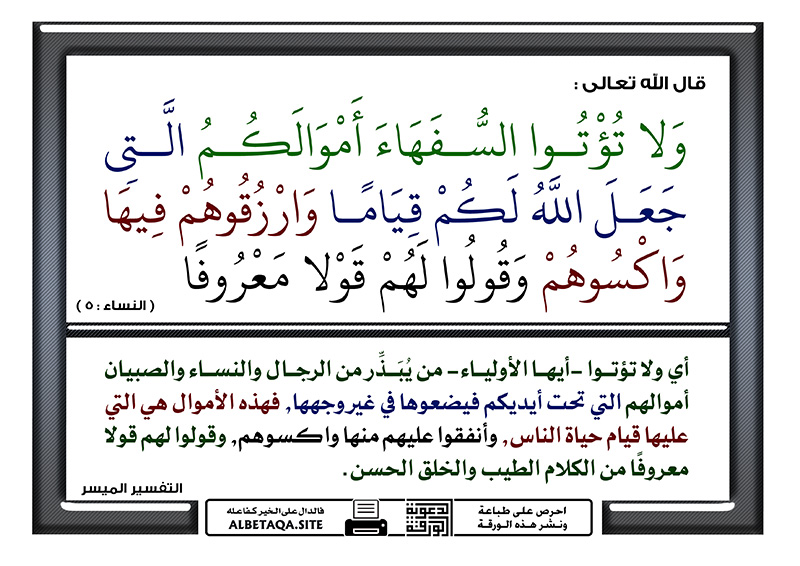 قال الله تعالى :
وَلا تُؤْتُوا السُّفَهَاءَ أَمْوَالَكُمُ الَّتِي
جَعَلَ اللَّهُ لَكُمْ قِيَامًا وَارْزُقُوهُمْ فِيهَا
وَاكْسُوهُمْ وَقُولُوا لَهُمْ قَوْلا مَعْرُوفًا
( النساء : ٥ )
أي ولا تؤتوا -أيها الأولياء- من يُبَذِّر من الرجال والنساء والصبيان
أموالهم التي تحت أيديكم فيضعوها في غير وجهها, فهذه الأموال هي التي
عليها قيام حياة الناس, وأنفقوا عليهم منها واكسوهم, وقولوا لهم قولا
معروفًا من الكلام الطيب والخلق الحسن.
التفسير الميسر
احرص على طباعة
ونشر هذه الورقة
الورقة
الدعوية
فالدال على الخير كفاعله
ALBETAQA.SITE